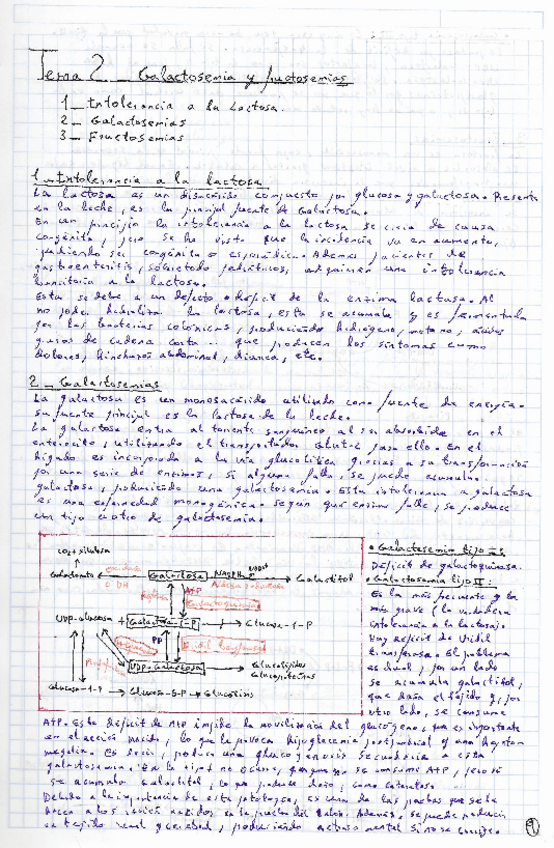 Tema 2 _ Galactosemia y fructosemias
1_ Intolerancia a la lactosa.
2_ Galactosemias
3_ Fructosemias
1_ Intolerancia a la lactosa
La lactosa es un disacárido compuesto por glucosa y galactosa. Presente
en la leche, es la principal fuente de galactosa.
En un principio la intolerancia a la lactosa se creía de causa
congénita, pero se ha visto que la incidencia va en aumento,
pudiendo ser congénita o esporádica. Además pacientes de
gastroenteritis, sobretodo pediátricos, adquirieren una intolerancia
transitoria a la lactosa.
Esta se debe a un defecto o déficit de la enzima lactasa. Al
no poder hidrolizar la lactosa, esta se acumula y es fermentada
por las bacterias colónicas, produciendo hidrógeno, metano, ácidos
grasos de cadena corta... que producen los síntomas como
dolores, hinchazón abdominal, diarrea, etc.
2_ Galactosemias
La galactosa es un monosacárido utilizado como fuente de energía.
su fuente principal es la lactosa de la leche.
La galactosa entra al torrente sanguíneo al ser absorbida en el
enterocito, utilizando el transportador para ello. En el
hígado es incorporada a la vía glucolítica gracias a su transformación
por una serie de enzimas, si alguna falla, se puede acumular
galactosa, produciendo una galactosemia. Esta intolerancia a galactosa
es una enfermedad monogénica. según que enzima falle, se produce
un tipo u otro de galactosemia.
CO2 + xilulosa
Galactonato
Galactosa
NADPH
Galactitol
ATP
Galactoquinasa
UDP-glucosa + Galactosa-1-P
Glucosa-1-P
PP
UDP-Galactosa
Glucolípidos
Glucoproteínas
Glucosa-1-P → Glucosa-6-P → Glucólisis
• Galactosemia tipo I:
Déficit de galactoquinasa.
• Galactosemia tipo II:
Es la más frecuente y la
más grave (la verdadera
intolerancia a la lactosa).
Hay déficit de Uridil
transferasa. El problema
es dual, por un lado
se acumula galactitol,
que daña el tejido y, por
otro lado, se consume
ATP. Este déficit de ATP impide la movilización del glucógeno, que es importante
en el recién nacido, lo que le provoca hipoglucemia postprandial y una hepato
megalia. Es decir, produce una glucogenosis secundaria a esta
galactosemia. En la tipo I no ocurre, porque no se consume ATP, pero si
se acumula galactitol, lo que produce daño, como cataratas.
Debido a la importancia de esta patología, es una de las pruebas que se le
hacen a los recién nacidos en la prueba del talón. Además, se puede producir
en tejido renal y cerebral, produciendo retraso mental si no se corrige.
1